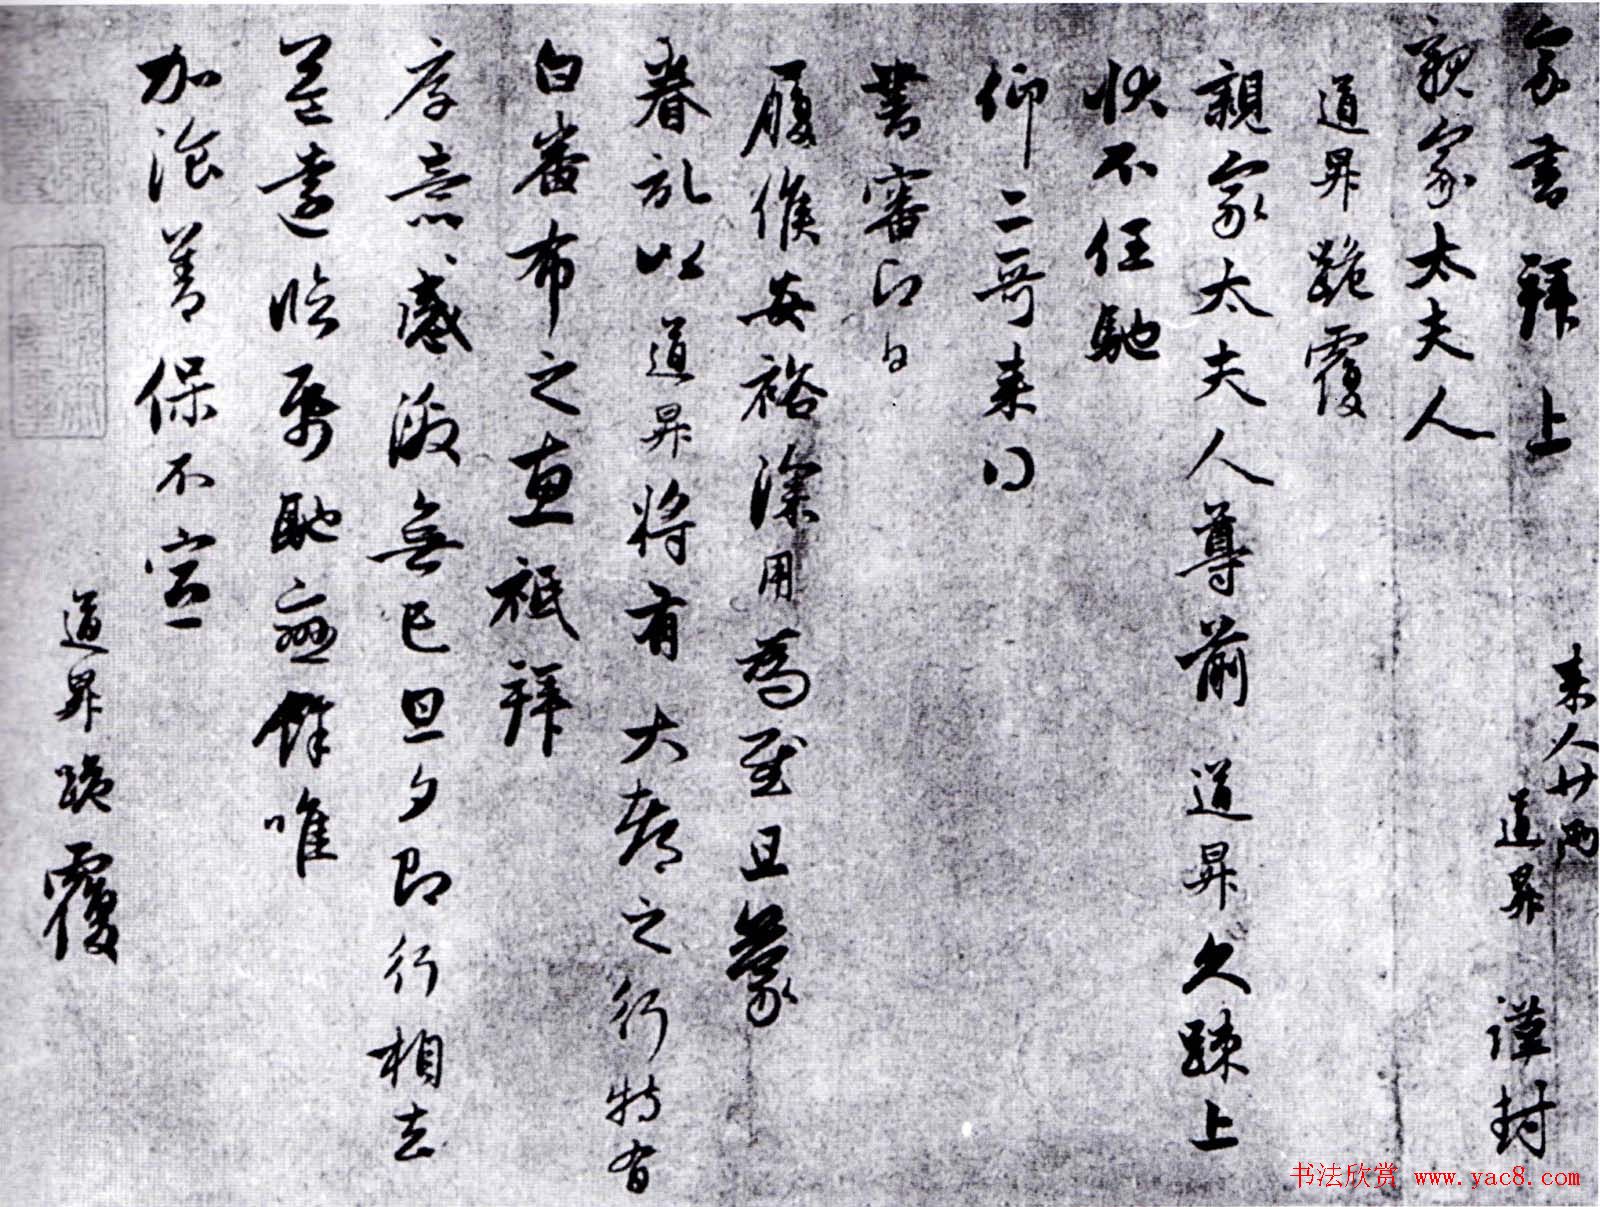 家書拜上
親家太夫人
来人廿両
道昇 謹封
道昇跪覆
親家太夫人尊前道昇久疎上
状不任馳
仰二哥来得
書審即日
履候安裕深用為慰且蒙
眷記以道昇将有大都之行特有
白番布之惠祗拜
厚意感激無已旦夕即行相去
益遠臨紙馳戀餘唯
加飡善保不宣
道昇跪覆
书法欣赏 www.yac8.com